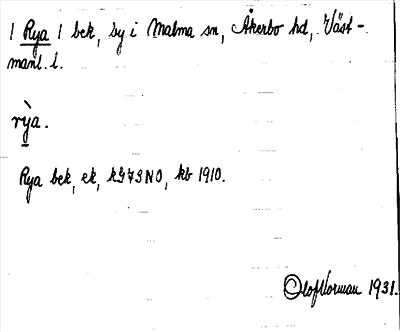 / Rya / bek, by i Malma sn, Åkerbo hd, Väst-
manl. l.
rỳa.
Rya bek, ek, kG 73 NO, kb 1910.
Olof Norman 1931.